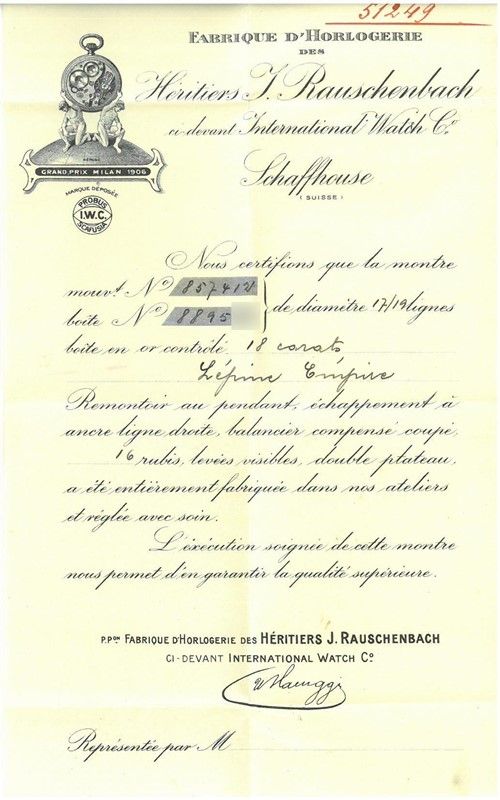 51249
FABRIQUE D'HORLOGERIE
DES
Héritiers J. Rauschenbach
ci-devant International Watch Co.
Schaffhouse
(SUISSE)
GRAND PRIX MILAN 1906
MARQUE DÉPOSÉE
PROBUS
I.W.C.
SCAFUSIA
Nous certifions que la montre
mouvt. No 857412
boîte No 8895
de diamètre 17/19 lignes
boîte en or contrôlé 18 carats
Lépine Empire
Remontoir au pendant, échappement à
ancre ligne droite, balancier compensé coupé,
16 rubis, levées visibles, double plateau,
a été entièrement fabriquée dans nos ateliers
et réglée avec soin.
L'éxécution soignée de cette montre
nous permet d'en garantir la qualité supérieure.
P.PON FABRIQUE D'HORLOGERIE DES HÉRITIERS J. RAUSCHENBACH
CI-DEVANT INTERNATIONAL WATCH CO
Représentée par M